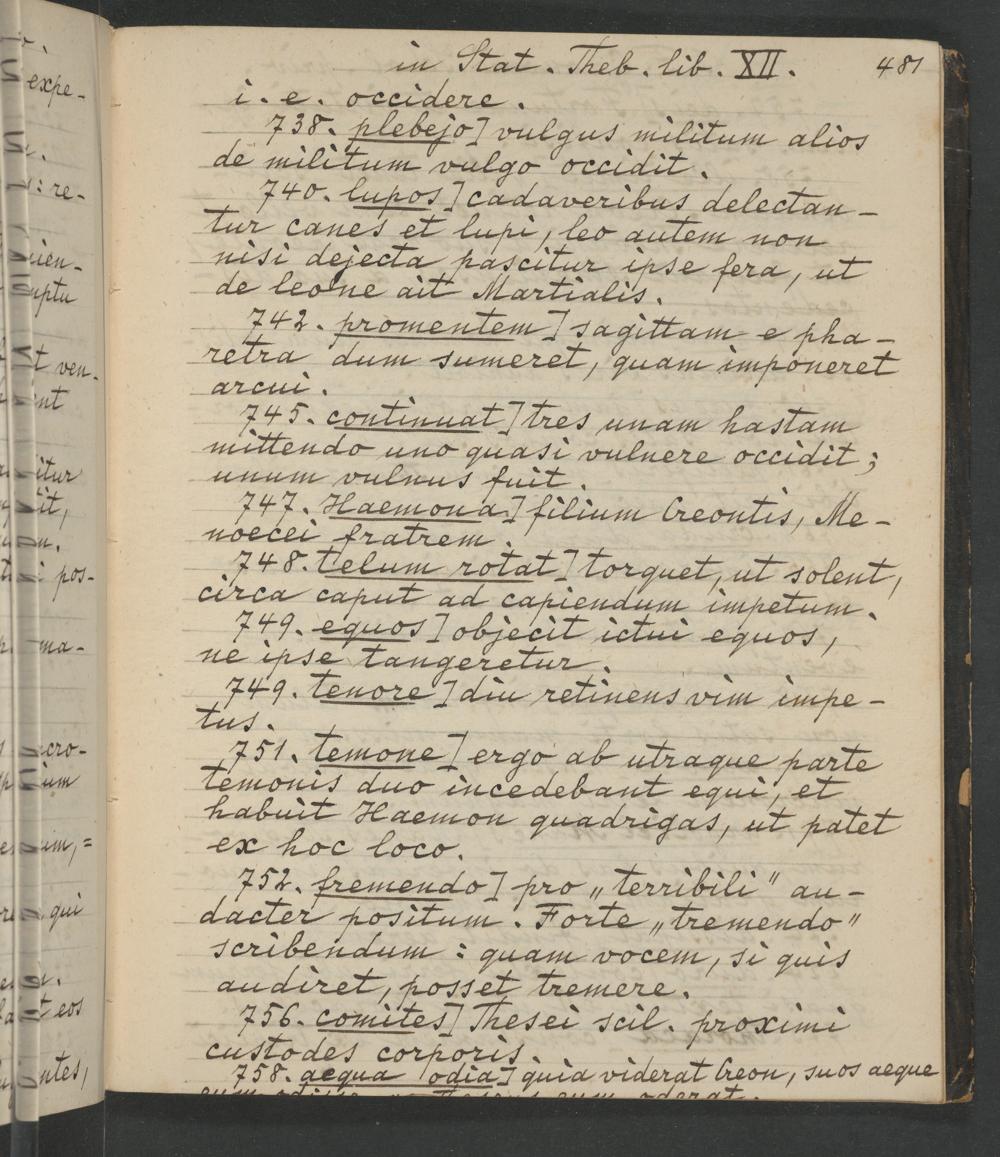 in Stat. Theb. lib. XII. 481
i. e. occidere.
738. plebejo] vulgus militum alios
de militum vulgo occidit.
740. lupos] cadaveribus delectan-
tur canes et lupi, leo autem non
nisi dejecta pascitur ipse fera, ut
de leone ait Martialis.
742. promentem] sagittam e pha-
retra dum sumeret, quam imponeret
arcui.
745. continuat] tres unam hastam
mittendo uno quasi vulnere occidit;
unum vulnus fuit.
747. Haemona] filium Creontis, Me-
noecei fratrem.
748. telum rotat] torquet, ut solent,
circa caput ad capiendum impetum.
749. equos] objecit ictui equos,
ne ipse tangeretur.
749. tenore] diu retinens vim impe-
tus.
751. temone] ergo ab utraque parte
temonis duo incedebant equi, et
habuit Haemon quadrigas, ut patet
ex hoc loco.
752. fremendo] pro „terribili" au-
dacter positum. Forte „tremendo"
scribendum: quam vocem, si quis
audiret, posset tremere.
756. comites] Thesei scil. proximi
custodes corporis.
758. aequa odia] quia viderat Creon, suos aeque
expe-
: re-
uien-
uptu
t ven-
itur
pos-
ma-
qui
eos